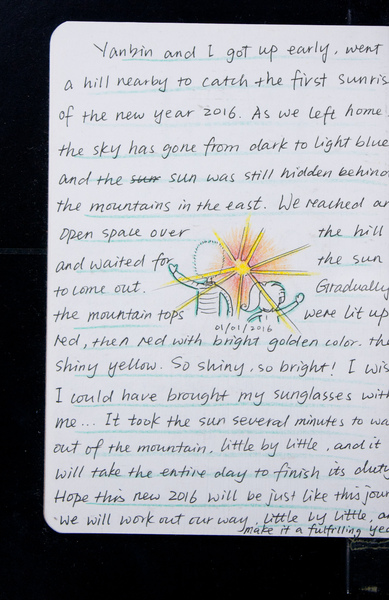 Yanbin and I got up early, went
a hill nearby to catch the first sunris
of the new year 2016. As we left home
the sky has gone from dark to light blue
and the sun sun was still hidden behind
the mountains in the east. We reached an
open space over the hill
and waited for the sun
to come out. Gradually
the mountain tops were lit up
01/01/2016
red, then red with bright golden color. the
shiny yellow. So shiny, so bright! I wis
I could have brought my sunglasses with
me... It took the sun several minutes to wa
out of the mountain, little by little, and it
will take the entire day to finish its duty
Hope this new 2016 will be just like this jour
we will work out our way, little by little, a
make it a fulfilling yea